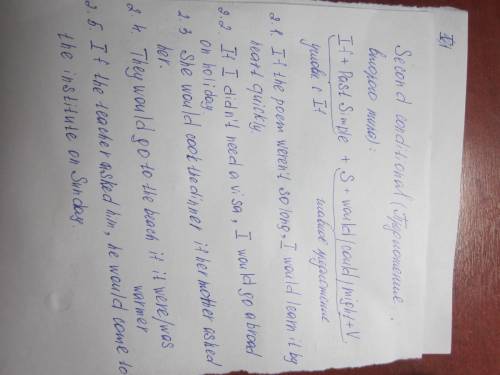 Second conditional (Предложение
второго типа):
If + Past Simple + S + would/could/might + V
условие с If главное предложение
2.1. If the poem weren't so long, I would learn it by
heart quickly
2.2 If I didn't need a visa, I would go abroad
on holiday
2.3 She would cook the dinner if her mother asked
her.
2.4. They would go to the beach if it were/was
warmer
2.5. If the teacher asked him, he would come to
the institute on Sunday